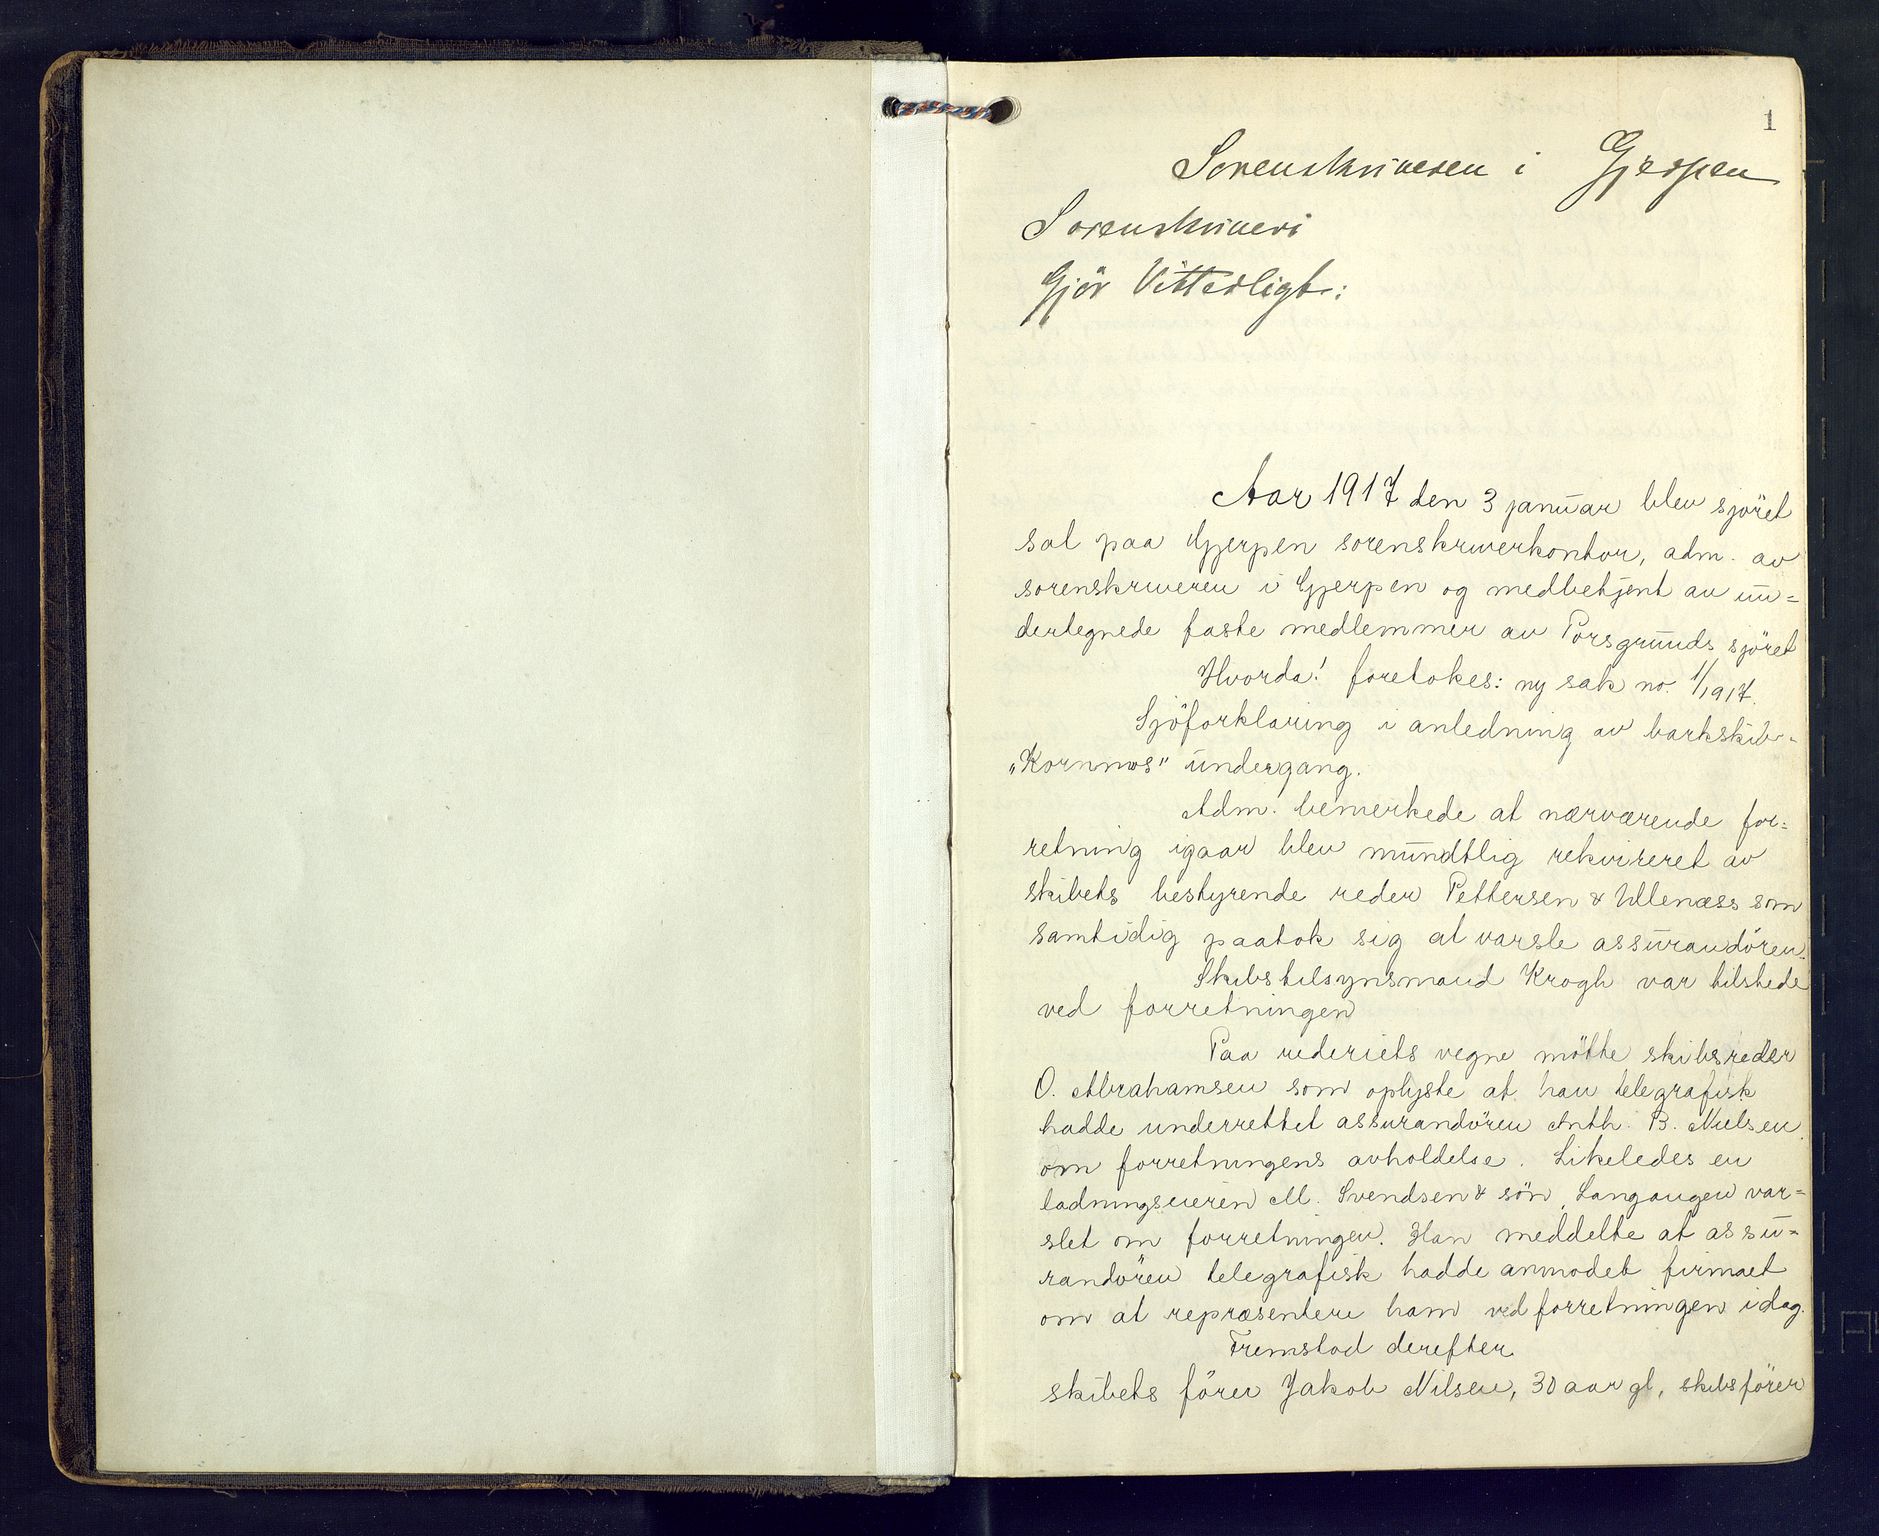 1
Sorenskriveren i Gjerpen
Sorenskriveri
Gjör Vitterligt:
Aar 1917 den 3 januar blev sjöret
sat paa Gjerpen sorenskriverkontor, adm. av
sorenskriveren i Gjerpen og medbetjent av un=
dertegnede faste medlemmer av Porsgrunds sjöret
Hvorda! foretokes: ny sak no. 1/1917.
Sjöforklaring i anledning av barkskib
„Kornmos" undergang.
Adm. bemerkede at nærværende for=
retning igaar blev mundtlig rekvireret av
skibets bestyrende reder Pettersen & Ullenæss som
samtidig paatok sig at varsle assurandören.
Skibstilsynsmand Krogh var tilstede
ved forretningen
Paa rederiets vegne mötte skibsreder
O. Abrahamsen som oplyste at han telegrafisk
hadde underrettet assurandören Anth. B. Nielsen
om forretningens avholdelse. Likeledes en
ladningseieren M. Svendsen & sön, Langangen var=
slet om forretningen. Han meddelte at assu=
randören telegrafisk hadde anmodet firmaet
om at repræsentere ham ved forretningen idag.
Fremstod derefter
skibets förer Jakob Nilsen, 30 aar gl, skibsförer